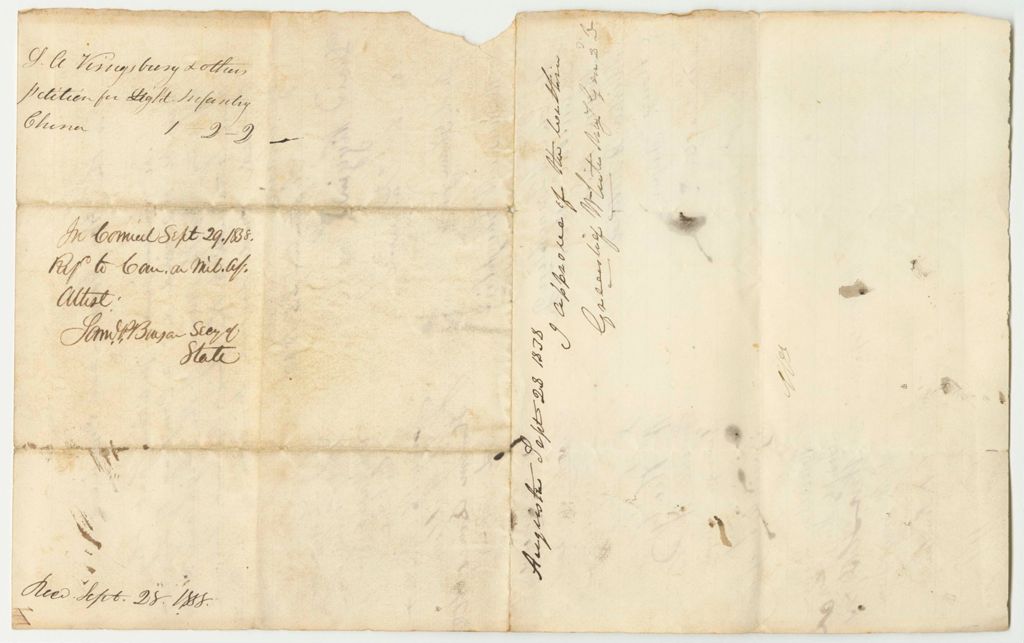 L A Kingsbury & others
Petition for Light Infantry
China 1 - 2 - 2
In Council Sept 29. 1838.
Refd to Com. on Mil. Aff.
Attest.
Saml P. Benson Secy of
State
Recd Sept. 28. 1838.
Augusta Sept 28 1838
I approve of the within
Greenlief White Maj Gen 2 D